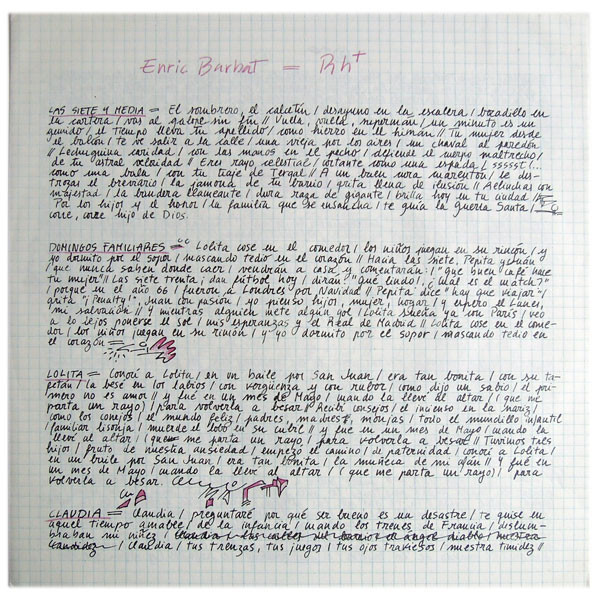 Enric Barbat = Rh+
LAS SIETE Y MEDIA = El sombrero, el calcetín / desayuno en la escalera / bocadillo en
la cartera / vas al galope sin fin // Vuela, vuela, superman / un minuto es un
gemido / el tiempo lleva tu apellido / como hierro en el himán // Tu mujer desde
el balcón / te ve salir a la calle / una vieja por los aires / un chaval al paredón
// Lechuguina caridad / con las manos en el pecho / defiende el cuerpo maltrecho /
de tu astral velocidad // Eres rayo celestial / cortante como una espada / sssssst!...
como una bala / con tu traje de Tergal // A un buen cura mareston / se des-
trozas el breviario / la jamona de tu barrio / grita llena de ilusión // Aeluchas con
majestad / la bandera llameante / dura raza de gigante / brilla hoy en tu ciudad //
Por los hijos y el honor / la familia que se ensancha / te guía la Guerra Santa /
corre, corre hijo de Dios.
DOMINGOS FAMILIARES = Lolita cose en el comedor / los niños juegan en su rincón / y
yo dormito por el sopor / mascando tedio en el corazón // Hacia las siete, Pepita y
/ que nunca saben donde caer / vendrán a casa y comentarán: / "que buen café hace
tu mujer" // Las siete treinta, dan fútbol hoy / dirán "que lindo!, ¿cuál es el match?"
/ porque en el año 66 / fueron a Londres por Navidad // Pepita dice "hay que viajar"
grita "¡Penalty!", Juan con pasión / yo pienso hijos, mujer, hogar / y espero el Lunes,
mi salvación // Y mientras alguien mete algún gol / Lolita sueña ya con París / veo
a lo lejos ponerse el sol / mis esperanzas y el Real de Madrid // Lolita cose en el come-
dor / los niños juegan en su rincón / y yo dormito por el sopor / mascando tedio en
el corazón
LOLITA = Conocí a Lolita / en un baile por San Juan / era tan bonita / con su ta-
fetán / la besé en los labios / con vergüenza y con rubor / como dijo un sabio / el pri-
mero no es amor // y fué en un mes de Mayo / cuando la llevé al altar / (que me
parta un rayo) / para volverla a besar. // Recibí consejos / el incienso en la nariz /
como los conejos / el mundo feliz / padres, madres, monjas / todo el mundillo infantil
/ familiar lisonja / muerde el lobo su cubil / y fué en un mes de Mayo / cuando la
llevé al altar / (que me parta un rayo) / para volverla a besar // Tuvimos tres
hijos / fruto de nuestra ansiedad / empezó el camino / de paternidad / conocí a Lolita /
en un baile por San Juan / era tan bonita / la muñeca de mi afán // Y fué en
un mes de Mayo / cuando la llevé al altar / (que me parta un rayo) / para
volverla a besar.
CLAUDIA = Claudia / preguntaré por qué ser bueno es un desastre / te quise en
aquel tiempo amable / de la infancia / cuando los trenes de Francia / dislum-
braban mi niñez / Claudia / las calles del barrio el ángel diablo / nuestra
candidez / Claudia / tus trenzas, tus juegos / tus ojos traviesos / nuestra timidez //